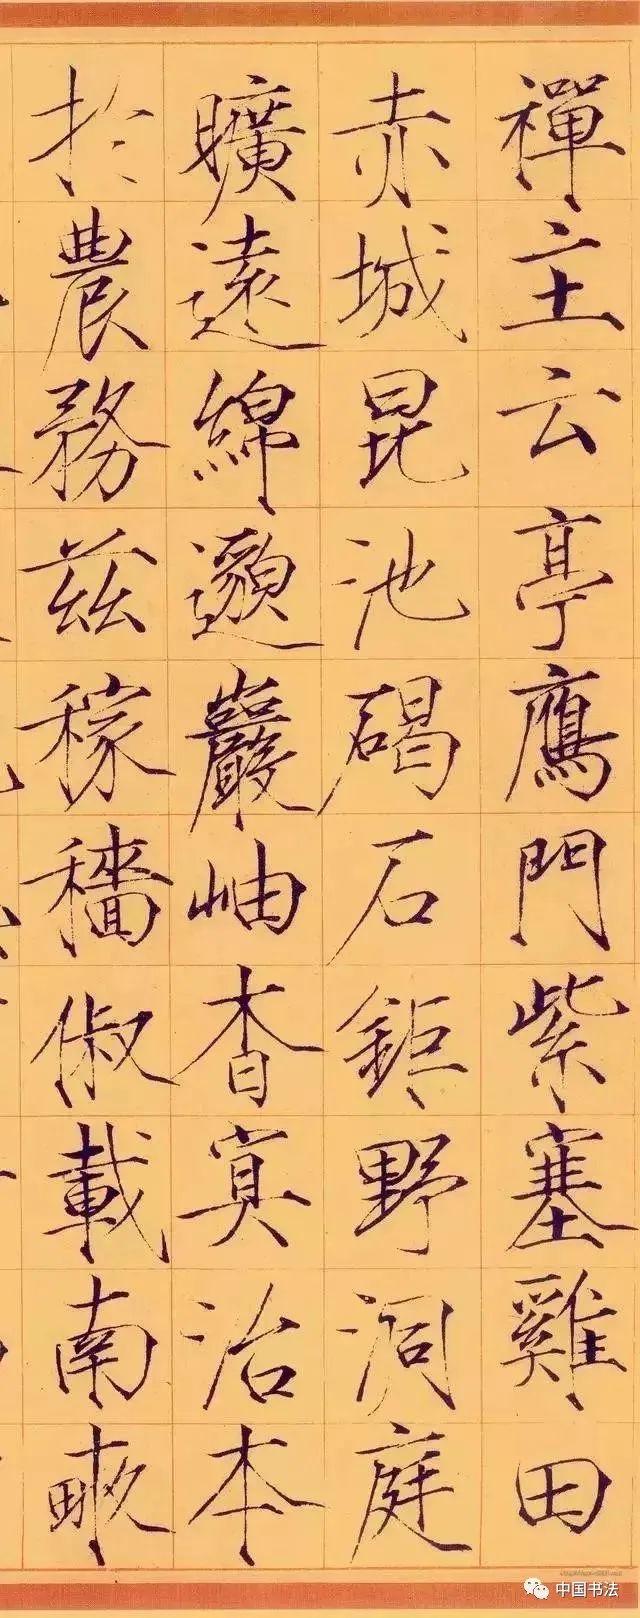 禪主云亭鷹門紫塞雞田
赤城昆池碣石鉅野洞庭
曠遠綿邈巖岫杳冥治本
於農務茲稼穡俶載南畝
中国书法